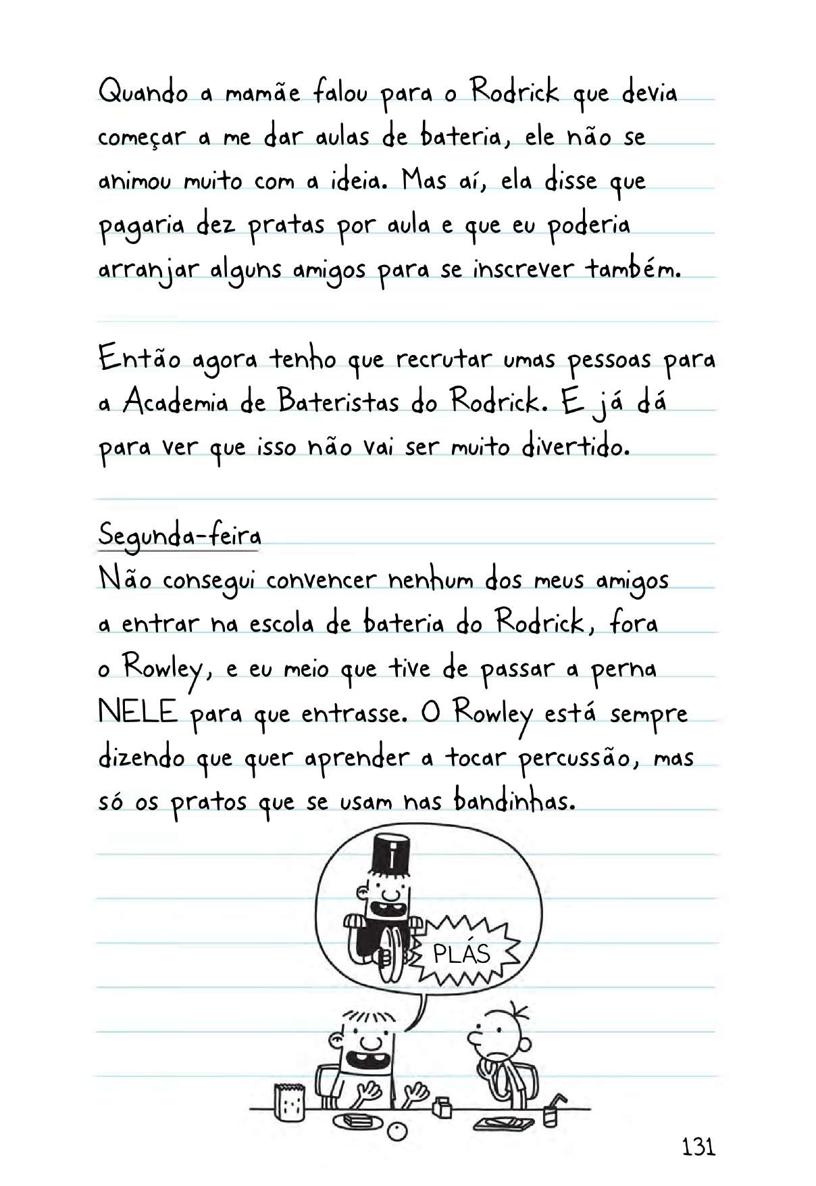 Quando a mamãe falou para o Rodrick que devia
começar a me dar aulas de bateria, ele não se
animou muito com a ideia. Mas aí, ela disse que
pagaria dez pratas por aula e que eu poderia
arranjar alguns amigos para se inscrever também.
Então agora tenho que recrutar umas pessoas para
a Academia de Bateristas do Rodrick. E já dá
para ver que isso não vai ser muito divertido.
Segunda-feira
Não consegui convencer nenhum dos meus amigos
a entrar na escola de bateria do Rodrick, fora
o Rowley, e eu meio que tive de passar a perna
NELE para que entrasse. O Rowley está sempre
dizendo que quer aprender a tocar percussão, mas
só os pratos que se usam nas bandinhas.
PLÁS
131